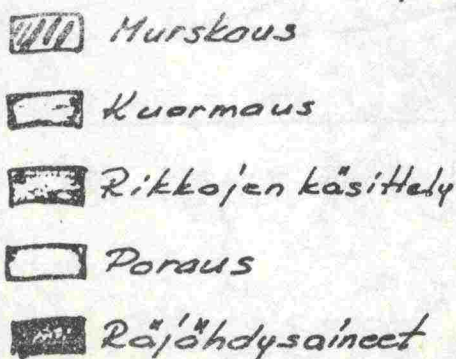 Murskaus
Kuormaus
Rikkojen käsittely
Poraus
Räjähdysaineet